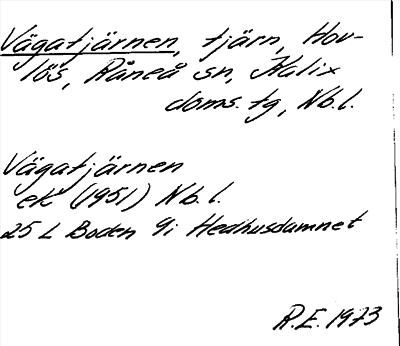 Vägatjärnen, tjärn, Hov-
lös, Råneå sn, Kalix
doms. tg, Nb.l.
Vägatjärnen
ek (1951) Nb.l.
25 L Boden 9i Hedhusdamnet
R.E. 1973